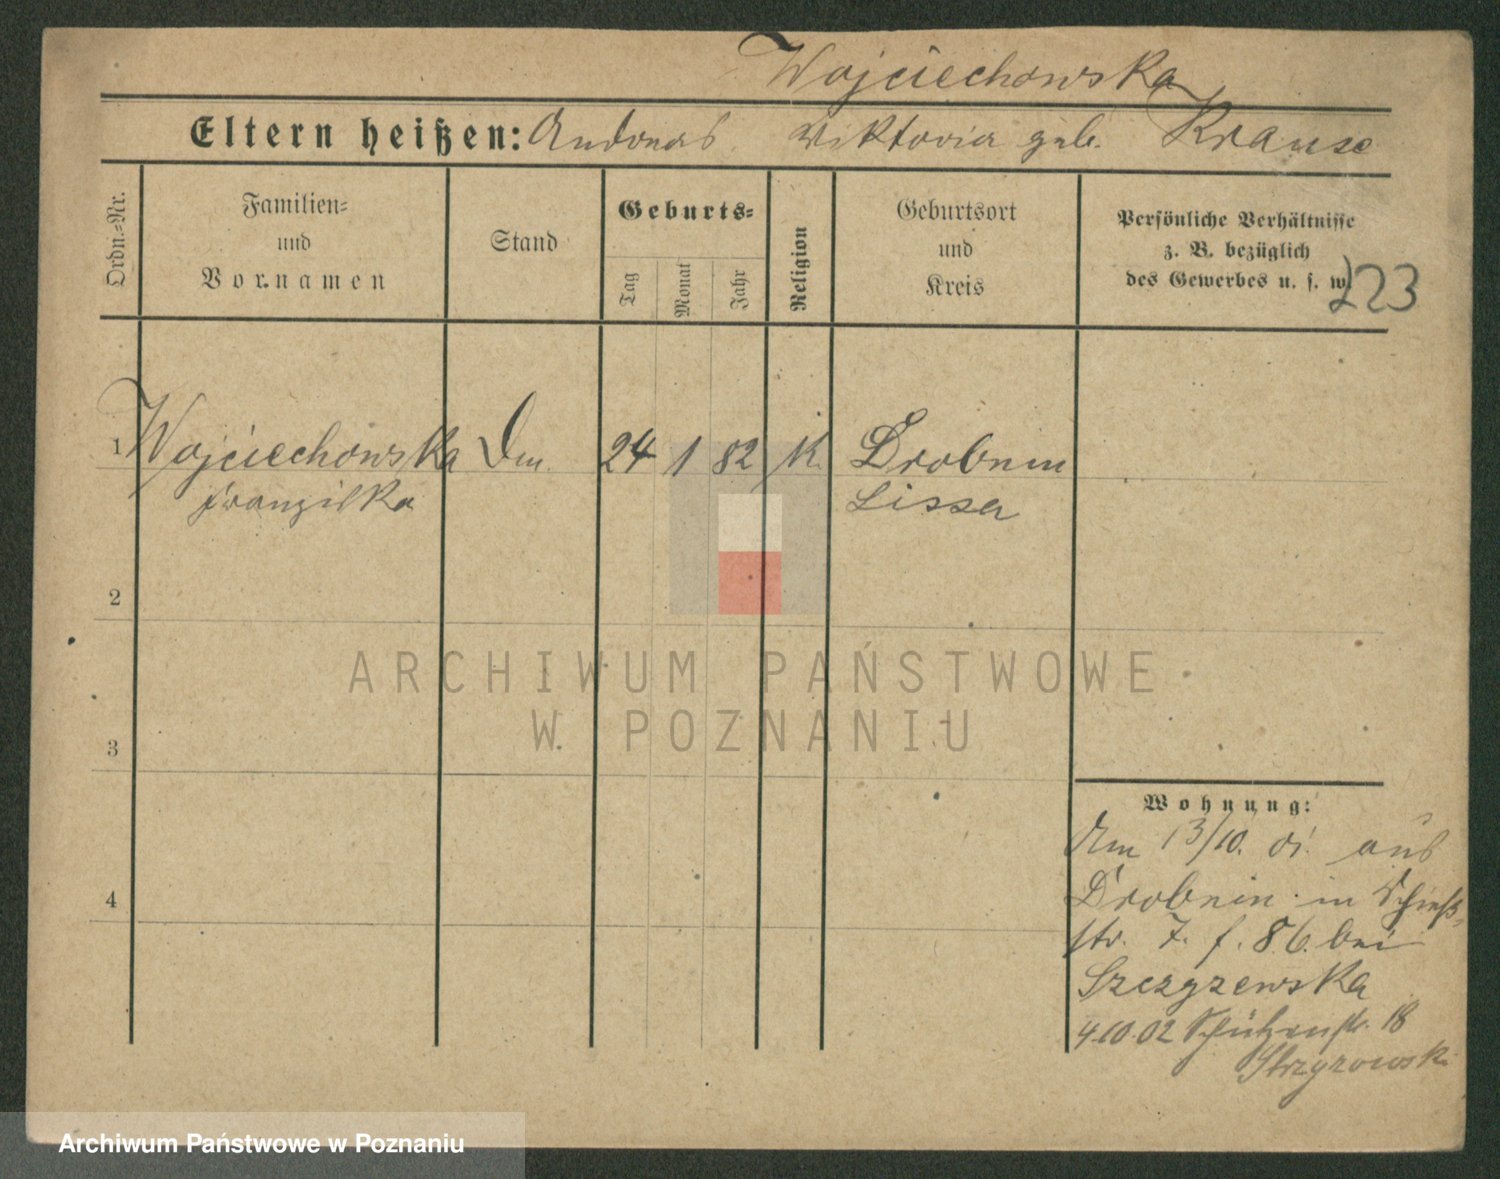 Wojciechowska
Eltern heißen: Andreas Wiktoria geb. Krause
Ordn.-Nr.
Familien-
und
Vornamen
Stand
Geburts-
Tag
Monat
Jahr
Religion
Geburtsort
und
Kreis
Persönliche Verhältnisse
z. B. bezüglich
des Gewerbes u. s. w.
223
1 Wojciechowska 24 1 82 K. Drobnin
Franziska Lissa
2
ARCHIWUM PAŃSTWOWE
W POZNANIU
3
Wohnung:
Am 13/10. aus
4
Drobnin in Schieß-
str. 7. f. 86. bei
Szczyzewska
4.10.02 Schützenstr. 18
Archiwum Państwowe w Poznaniu